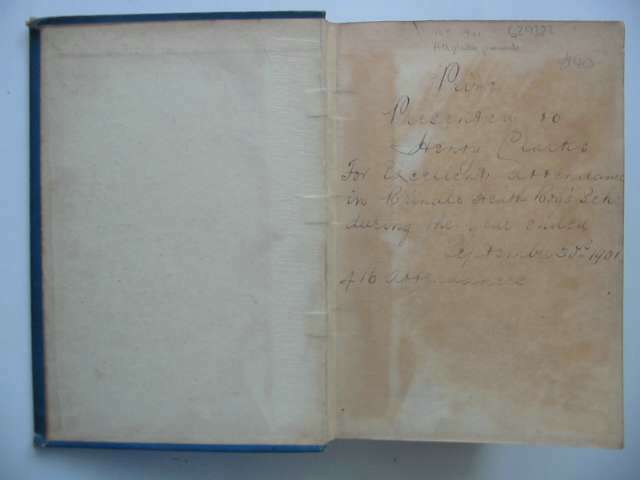 629322
Prize
Presented to
Henry Clarke
For Excellent attendance
in Brindle Heath Boys Sch
during the year ended
September 30th 1901
416 Attendances